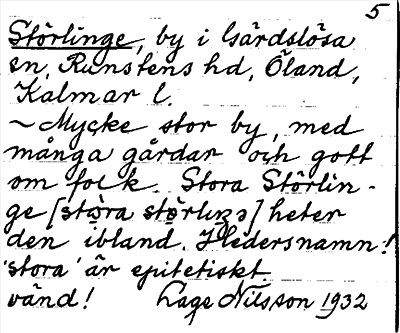 5
Störlinge, by i Gärdslösa
sn, Runstens hd, Öland,
Kalmar l.
~ Mycke stor by, med
många gårdar och gott
om folk. Stora Störlin-
ge [stɷ̀ra stø̀rlıŋə] heter
den ibland. Hedersnamn!
'stora' är epitetiskt
vänd! Lage Nilsson 1932